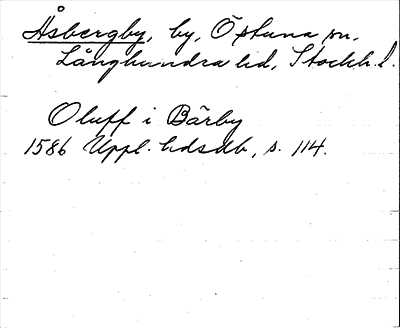 Åsbergby, by, Östuna sn,
Långhundra hd, Stockh. l.
Oluff i Bärby
1586 Uppl. hdsdb, s. 114.